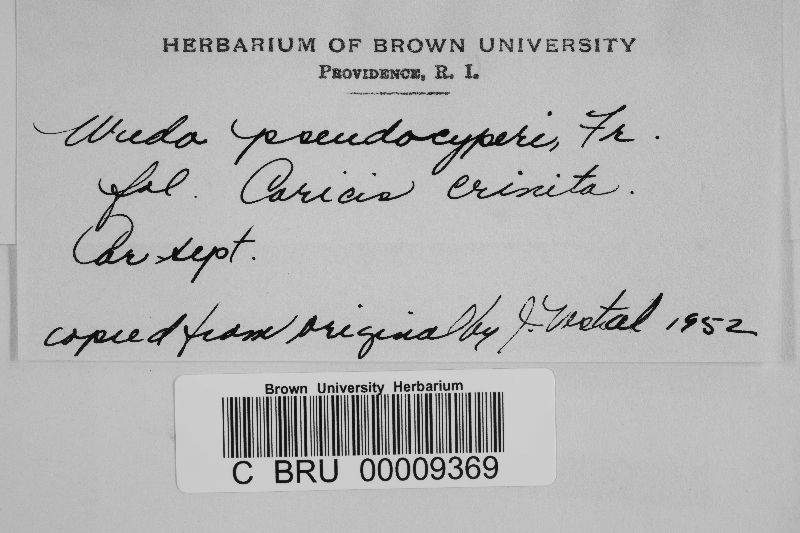 HERBARIUM OF BROWN UNIVERSITY
PROVIDENCE, R. I.
Uredo pseudocyperi, Fr.
fol. Caricis crinita.
Car. sept.
copied from original by J. Vestal 1952
Brown University Herbarium
C BRU 00009369